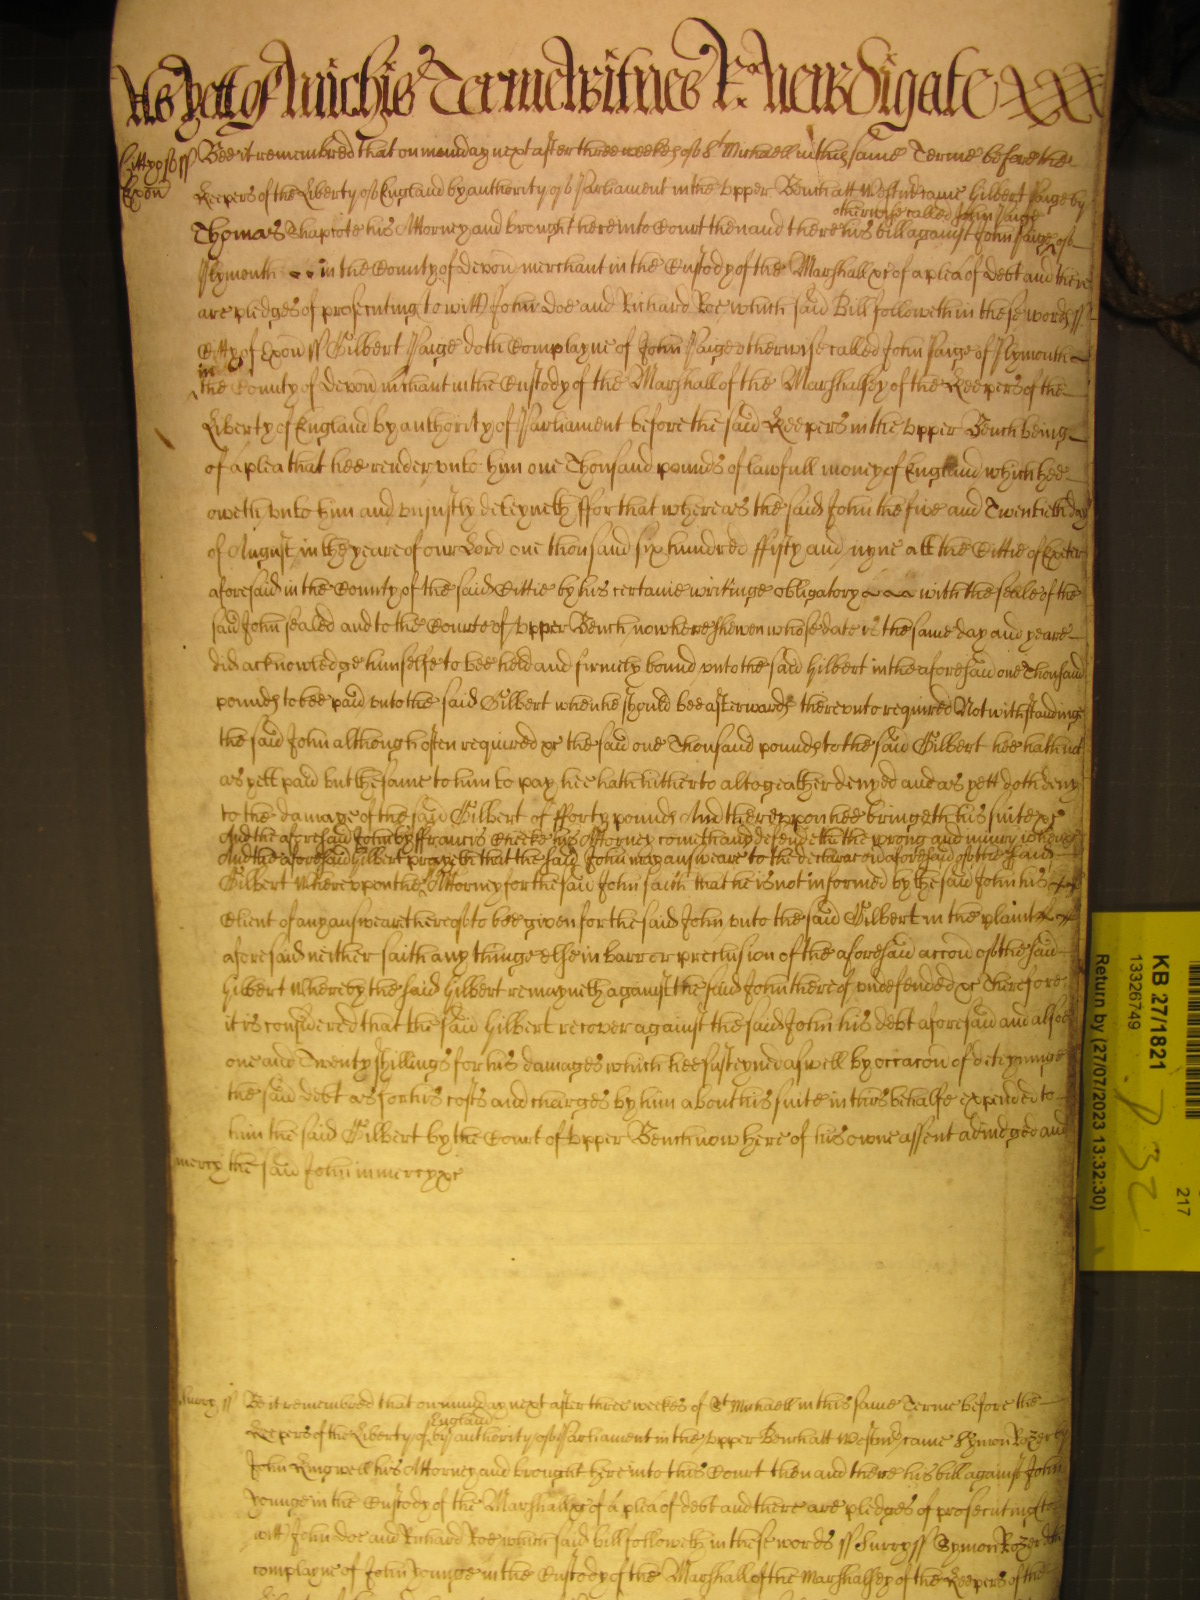 As yett of Michis Terme Witnes R: Newdigate
Cittye of ss Bee it remembred that on munday next after three weekes of St Michaell in this same Terme before the
Exon Keepers of the Liberty of England by authority of Parliament in the upper Bench att Westmr came Gilbert Paige by
otherwise called John Paige
Thomas Chapcote his Attorney and brought here into Court then and there his bill against John Paige of
Plymouth in the County of Devon merchant in the Custody of the Marshall &c of a plea of Debt and there
are pledges of prosecuting to witt John Doe and Richard Roe which said Bill followeth in these words ss
Citty of Exon ss Gilbert Paige doth Complayne of John Paige otherwise called John Paige of Plymouth
in
the County of Devon mchant in the Custody of the Marshall of the Marshalsey of the Keepers of the
Liberty of England by authority of Parliament before the said Keepers in the upper Bench being
of a plea that hee render unto him one Thousand pounds of lawfull money of England which hee
oweth unto him and unjustly deteyneth ffor that whereas the said John the five and Twentieth day
of August in the yeare of our Lord one thousand six hundred ffifty and nyne att the Cittie of Exeter
aforesaid in the County of the said Cittie by his certaine writinge obligatory with the seale of the
said John sealed and to the Courte of upper Bench now here shewen whose date is the same day and yeare
did acknowledge himselfe to bee held and firmely bound unto the said Gilbert in the aforesaid one Thousand
pounds to bee paid unto the said Gilbert when he should bee afterwards thereunto required Notwithstandinge
the said John although often required &c the said one Thousand pounds to the said Gilbert hee hath not
as yett paid but the same to him to pay hee hath hitherto altogeather denyed and as yett doth deny
to the damage of the said Gilbert of fforty pounds And thereuppon hee bringeth his suite &c
And the aforesaid John by ffrancis Cheeke his Attorney cometh and defendeth the wrong and injury when &c
And the aforesaid Gilbert prayeth that the said John may answeare to the declaracon aforesaid of the said
Gilbert Whereuppon the Attorney for the said John saith that he is not informed by the said John his
Client of any answeare thereof to bee given for the said John unto the said Gilbert in the plaint
aforesaid neither saith any thinge else in barr or preclusion of the aforesaid accon of the said
Gilbert Whereby the said Gilbert remayneth against the said John thereof undefended &c Therefore
it is considered that the said Gilbert recover against the said John his debt aforesaid and alsoe
one and Twenty shillings for his damages which hee susteyned aswell by occacon of deteyninge
the said debt as for his costs and charges by him about his suite in this behalfe expended to
him the said Gilbert by the Court of upper Bench now here of his owne assent adiudged and
mercy the said John in mercy &c
Surry ss Be it remembred that on munday next after three weekes of St Michaell in this same Terme before the
England
Keepers of the Liberty of by authority of Parliament in the upper Bench att Westmr came Symon Rozer by
John Ringwell his Attorney and brought here into this Court then and there his bill against John
Younge in the Custody of the Marshall &c of a plea of debt and there are pledges of prosecuting to
witt John doe and Richard Roe which said bill followeth in these words ss Surry ss Symon Rozer doth
complayne of John Younge in the Custody of the Marshall of the Marshalsey of the Keepers of the
KB 27/1821
13326749
Return by (27/07/2023 13:32:30)
217